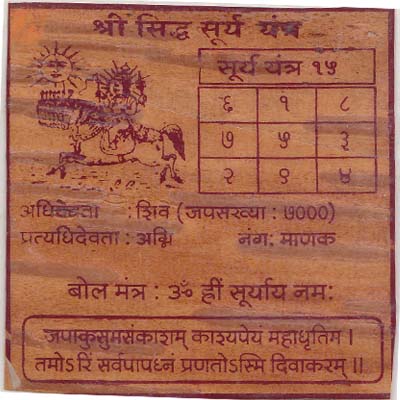 श्री सिद्ध सूर्य यंत्र
सूर्य यंत्र १५
६ १ ८
७ ५ ३
२ ९ ४
अधिदेवता : शिव (जपसख्या : ७०००)
प्रत्यधिदेवता : अग्नि नंग: माणक
बोल मंत्र : ॐ ह्रीं सूर्याय नम:
जपाकुसुमसंकाशम् काश्यपेयं महाधृतिम ।
तमोऽरिं सर्वपापध्नं प्रणतोऽस्मि दिवाकरम् ॥